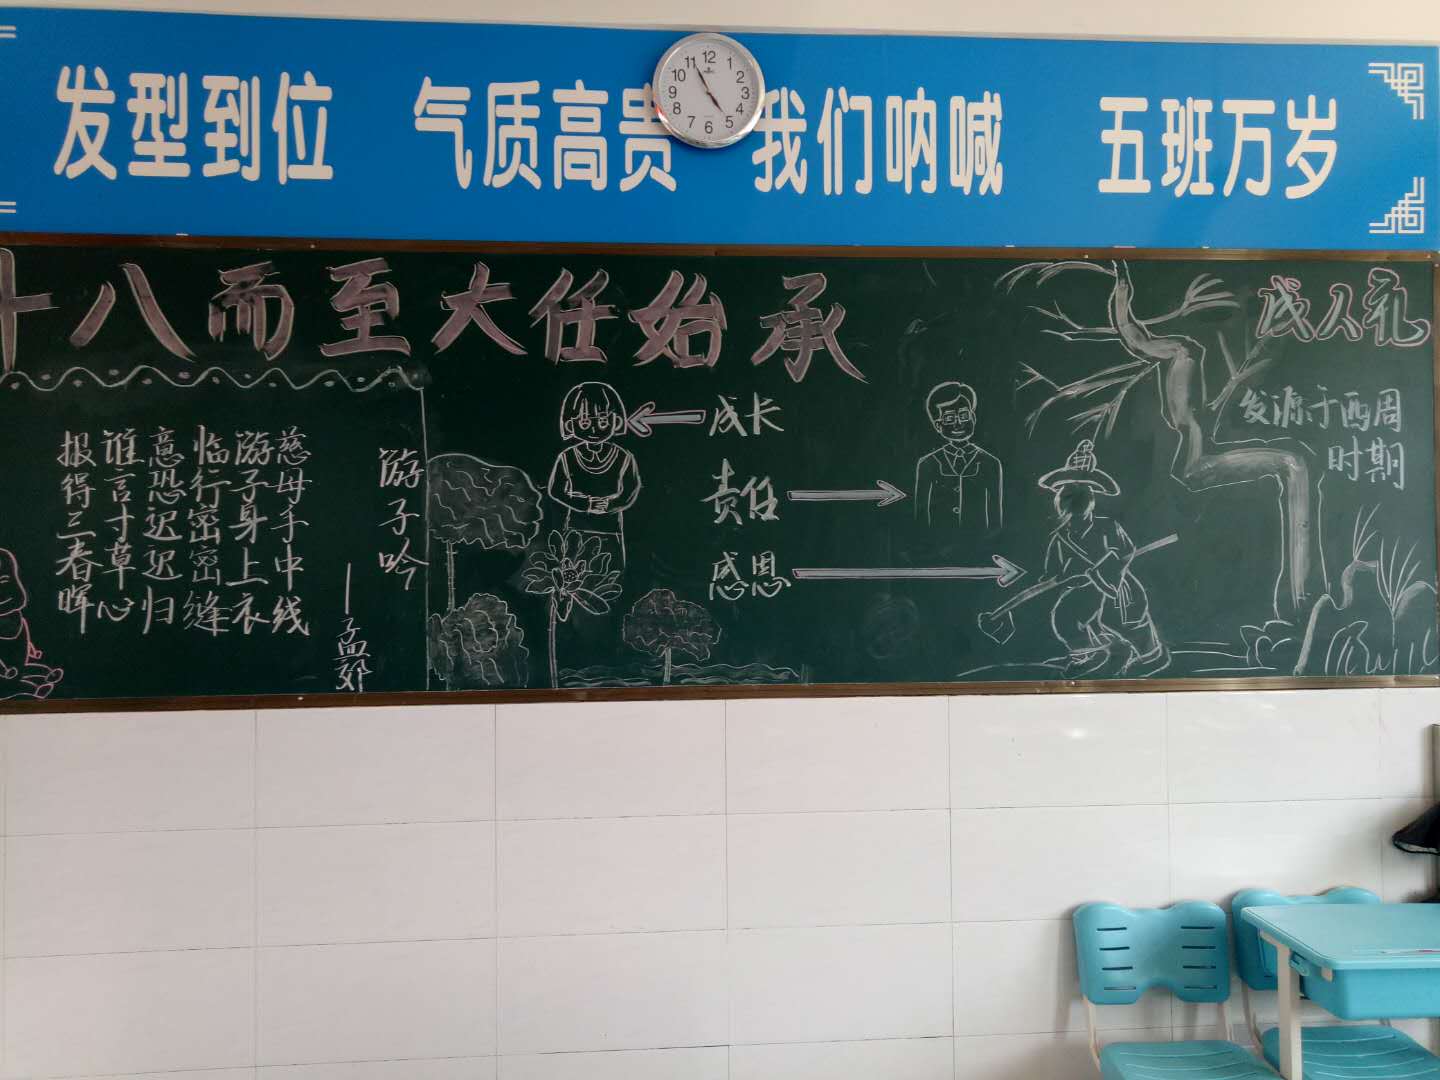 发型到位 气质高贵 我们呐喊 五班万岁
12
1
2
3
4
5
6
7
8
9
10
11
十八而至大任始承
成人礼
发源于西周
时期
游子吟
—孟郊
慈母手中线
游子身上衣
临行密密缝
意恐迟迟归
谁言寸草心
报得三春晖
成长
责任
感恩